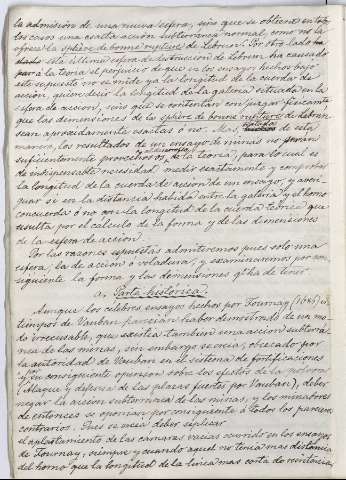 la admisión de una nueva esfera, sino que se obtiene en todos
los casos una exacta acción subterránea normal, como no la
ofrece la sphère de bonne rupture de Lebrun. Por otro lado ha
esta última esfera de destrucción de Lebrun ha causado
para la teoría el perjuicio de que en los ensayos hechos bajo
este supuesto no se mide ya la longitud de la cuerda de
acción, quiere decir la longitud de la galería situada en la
esfera de acción, sino que se contentan con juzgar
que las dimensiones de la sphère de bonne rupture de Lebrun
sean aproximadamente exactas ó no. Mas, de esta
manera, los resultados de un ensayo de minas no
suficientemente provechosos de la teoría, para lo cual es
de indispensable necesidad medir exactamente y comprobar
la longitud de la cuerda de acción de un ensayo, y averi-
guar si en la distancia habida entre la galería y el horno
concuerda ó no con la longitud de la cuerda teórica que
resulta por el cálculo de la forma y de las dimensiones
de la esfera de acción.
Por las razones expuestas admitiremos pues solo una
esfera, la de acción ó voladura, y examinaremos por con-
siguiente la forma y las dimensiones q.e ha de tener
a. Parte histórica.
Aunque los célebres ensayos hechos por Tournay (1686) en
tiempos de Vauban parecían haber demostrado de un mo-
do irrecusable, que existía también una acción subterrá-
nea de las minas, sin embargo se creía, ofuscado por
la autoridad de Vauban en el sistema de fortificaciones
y por consiguiente opinion sobre los efectos de la pólvora
(Ataque y defensa de las plazas fuertes por Vauban), deber
negar la acción subterránea de las minas, y los minadores
de entonces se oponían por consiguiente á todos los pareceres
contrarios. Pues se creía deber explicar
el aplastamiento de las cámaras vacías ocurrido en los ensayos
de Tournay, siempre y cuando aquel no tenía mas distancia
del horno que la longitud de la línea mas corta de resistencia,